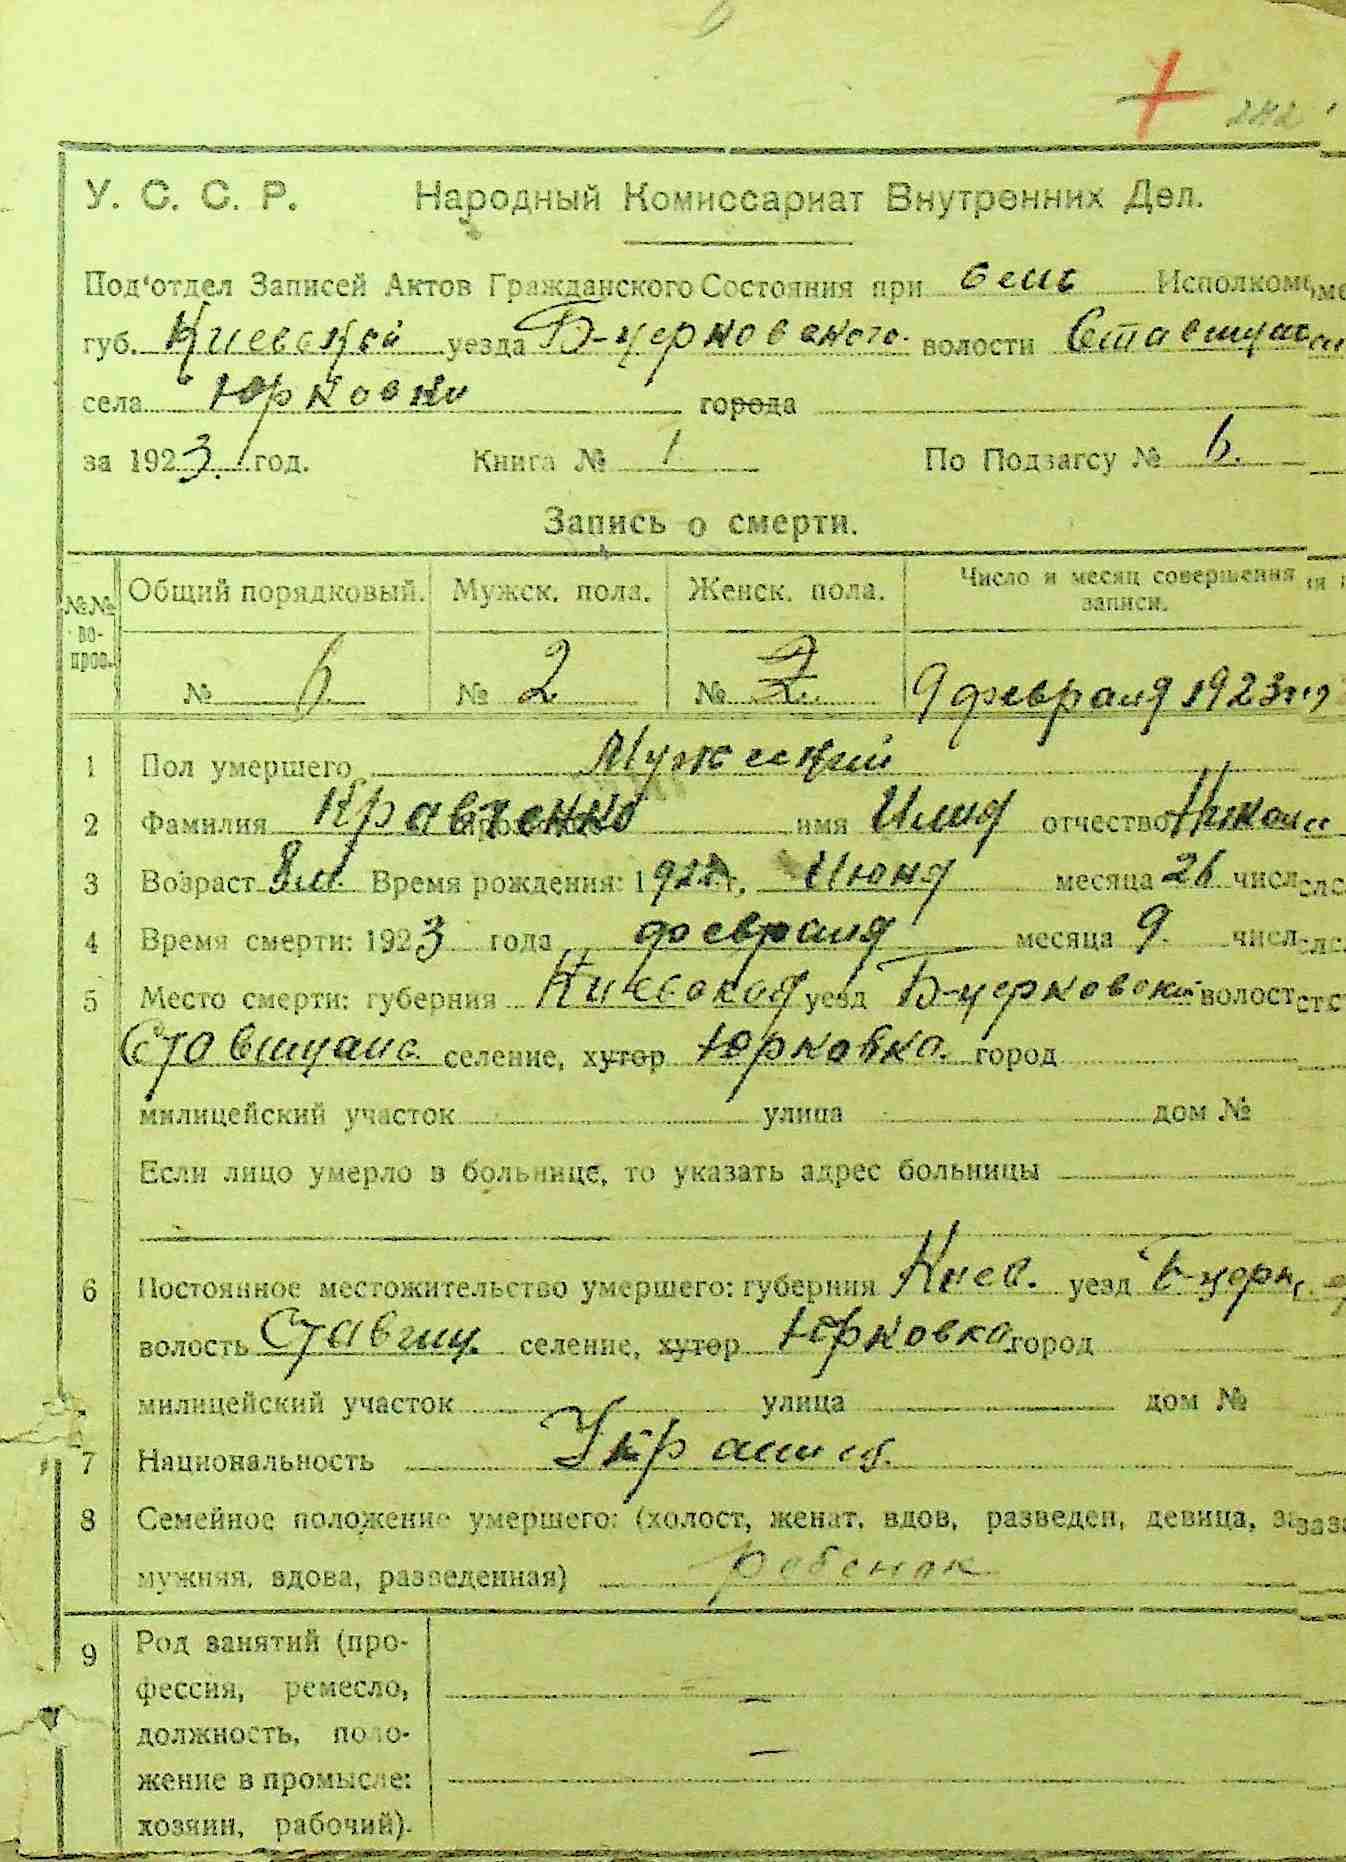 6
242
У. С. С. Р. Народный Комиссариат Внутренних Дел.
Под'отдел Записей Актов Гражданского Состояния при Исполкоме
губ. Киевской уезда Б-церковского волости Ставищанс
села Юрковки города
за 1923 год. Книга № 1 По Подзагсу № 6.
Запись о смерти.
№№ вопров. Общий порядковый. Мужск. пола. Женск. пола. Число и месяц совершения записи.
№ 6 № 2 № 2 9 февраля 1923
1 Пол умершего Мужеский
2 Фамилия Кравченко имя Илия отчество Никол
3 Возраст 8 м. Время рождения: 1922 г. Июня месяца 26 числ
4 Время смерти: 1923 года февраля месяца 9. числ
5 Место смерти: губерния Киевская уезд Б-церковский волост
Ставищанс. селение, хутор Юрковка. город
милицейский участок улица дом №
Если лицо умерло в больнице, то указать адрес больницы
6 Постоянное местожительство умершего: губерния Киев. уезд Б-церк.
волость Ставищ. селение, хутор Юрковка город
милицейский участок улица дом №
7 Национальность
8 Семейное положение умершего: (холост, женат, вдов, разведен, девица, за
мужняя, вдова, разведенная) ребенок
9 Род занятий (про-
фессия, ремесло,
должность, поло-
жение в промысле:
хозяин, рабочий).